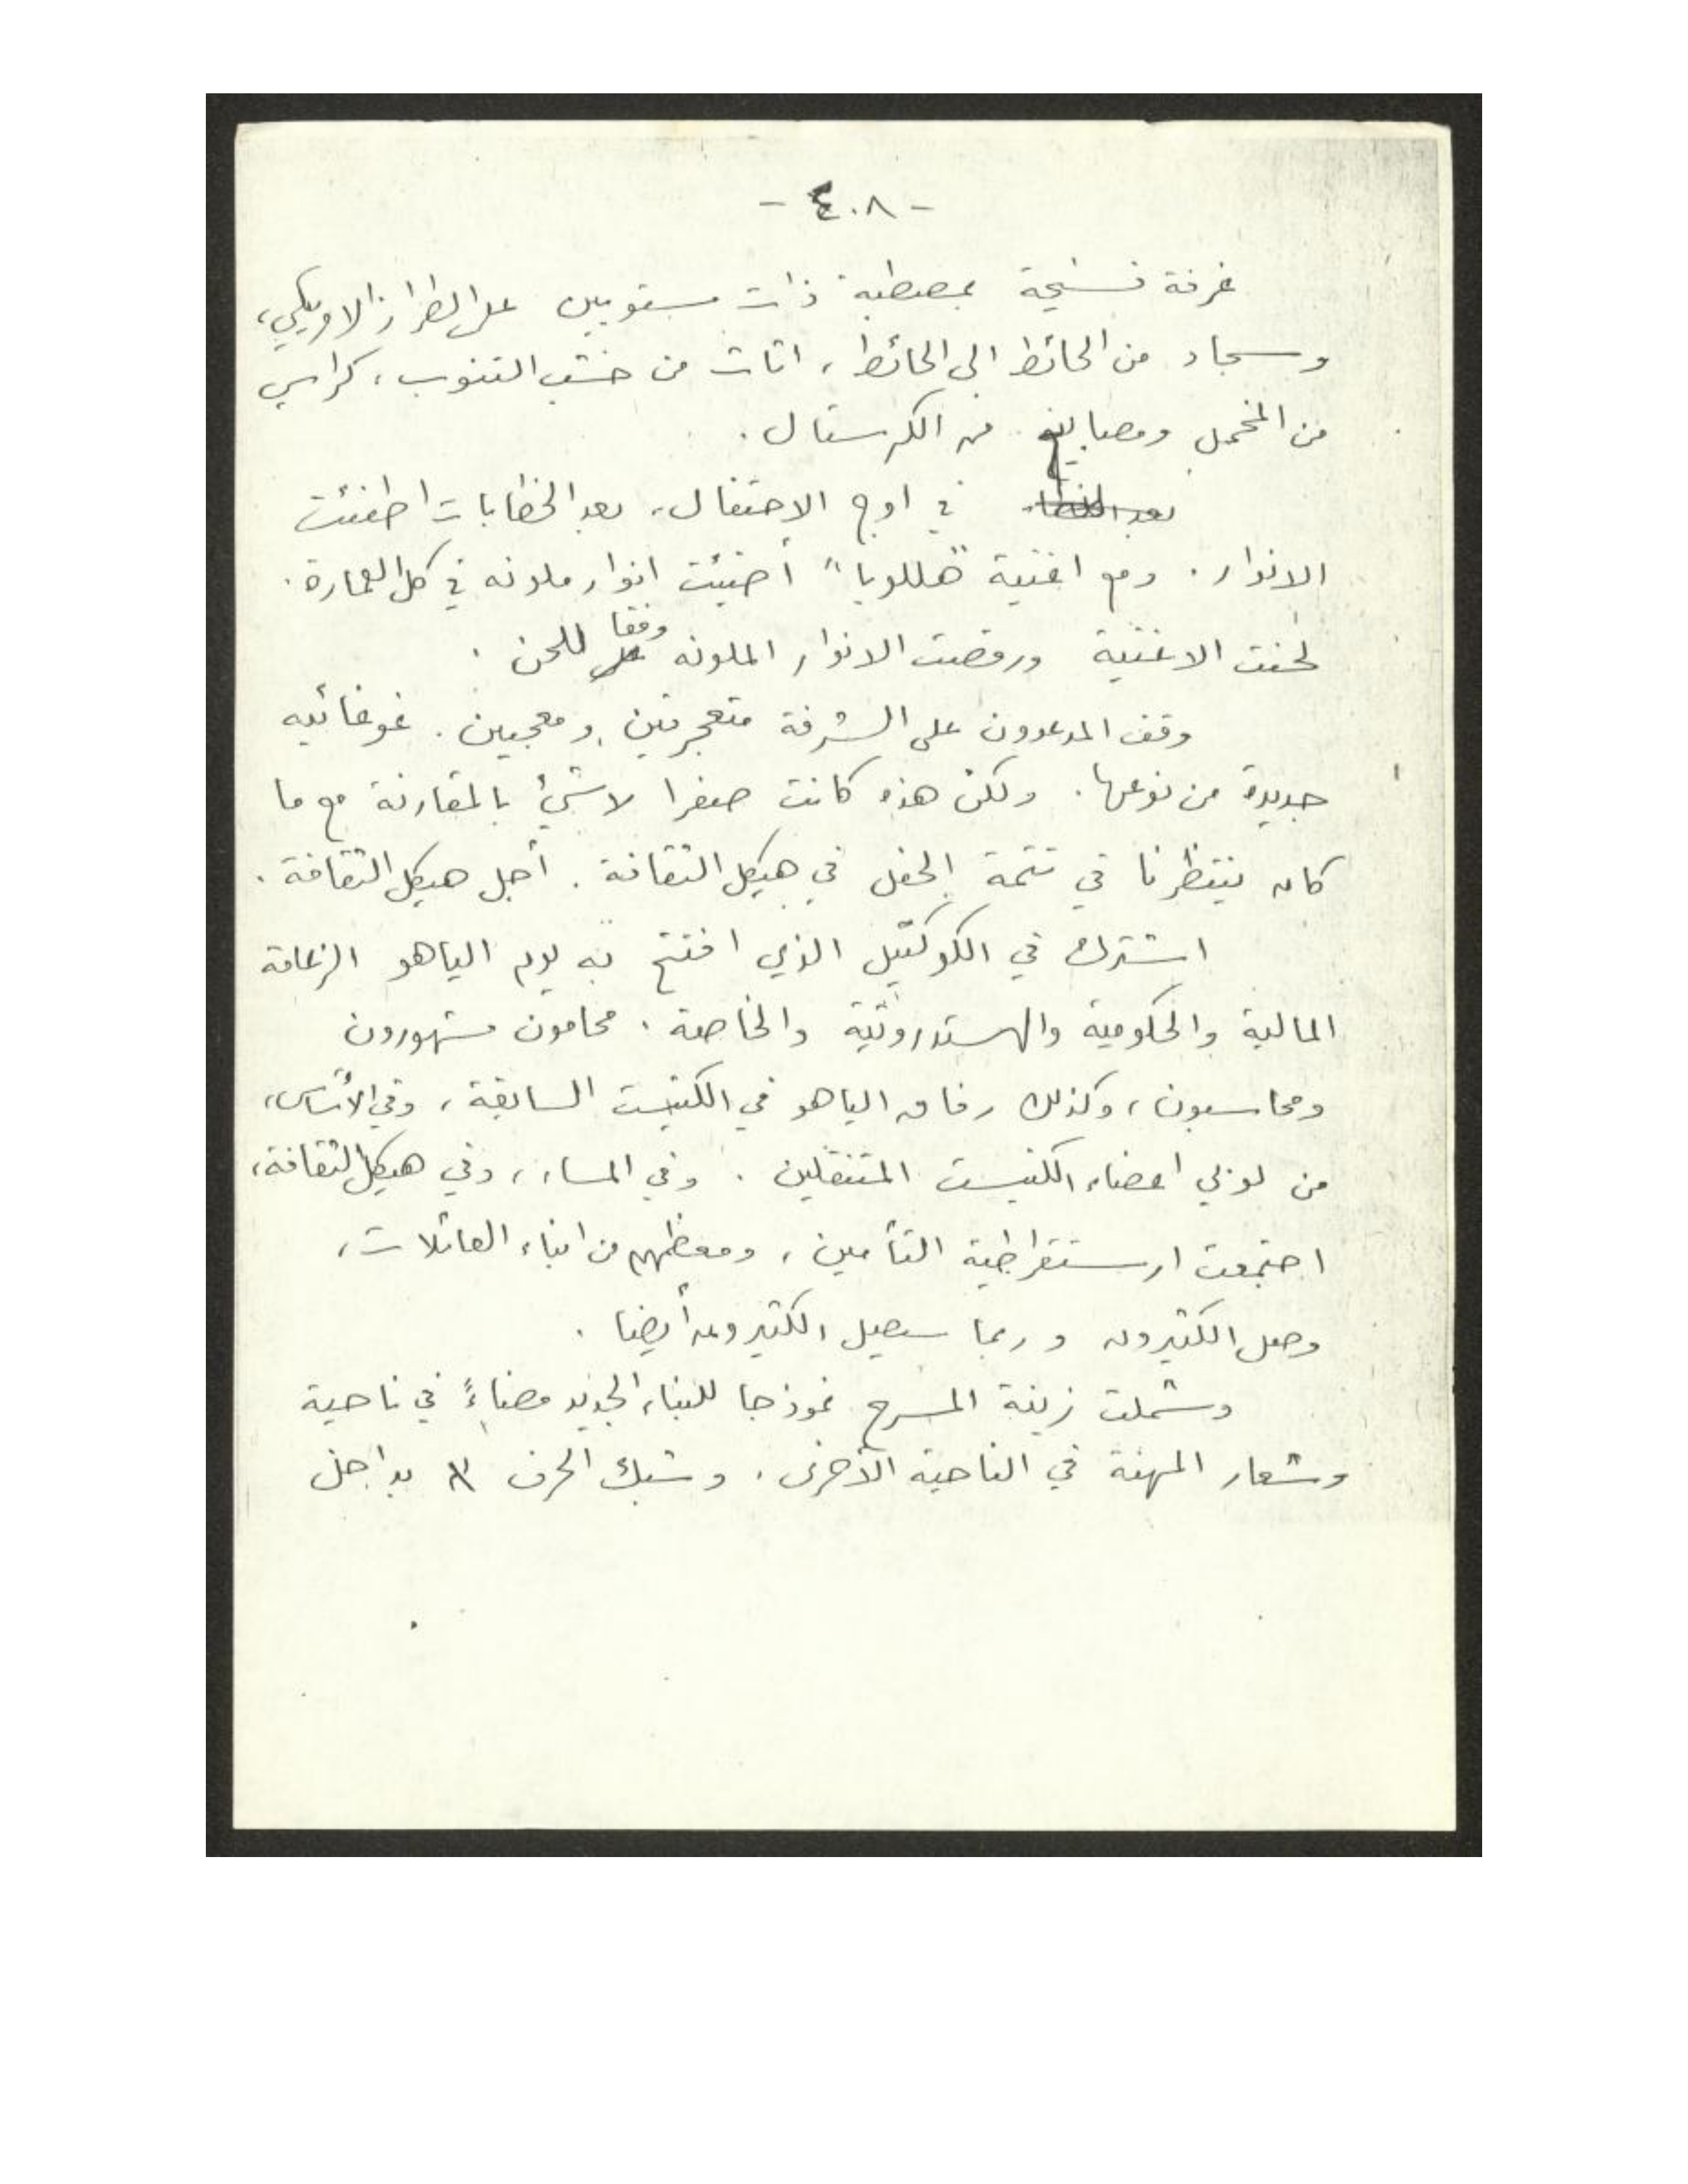 - ٤٠٨ -
غرفة فسيحة بمصطبة ذات مستويين على الطراز الامريكي،
وسجاد من الحائط الى الحائط، اثاث من خشب التنوب، كراسي
من المخمل ومصابيح من الكرستال.
في اوج الاحتفال، بعد الخطابات اطفئت
الانوار. ومع اغنية "هللويا" أضيئت انوار ملونه في كل العمارة.
لحنت الاغنية ورقصت الانوار الملونه وفقا للحن.
وقف المدعوون على الشرفة متعجرفين ومعجبين. غوغائيه
جديدة من نوعها. ولكن هذه كانت صفرا لا شيئ بالمقارنة مع ما
كان ينتظرنا في تتمة الحفل في هيكل الثقافة. أجل هيكل الثقافة.
اشترك في الكوكتيل الذي افتتح به يوم الياهو الزعامة
المالية والحكومية والهستدروتية والخاصة. محامون مشهورون
ومحاسبون، وكذلك رفاق الياهو في الكنيست السابقة، وفي الأساس،
من لوبي اعضاء الكنيست المتنقلين. وفي المساء، وفي هيكل الثقافة،
اجتمعت ارستقراطية التأمين، ومعظمهم من ابناء العائلات،
وصل الكثيرون وربما سيصل الكثيرون أيضا.
وشملت زينة المسرح نموذجا للبناء الجديد مضاءً في ناحية
وشعار المهنة في الناحية الأخرى. وشبك الحرف א بداخل